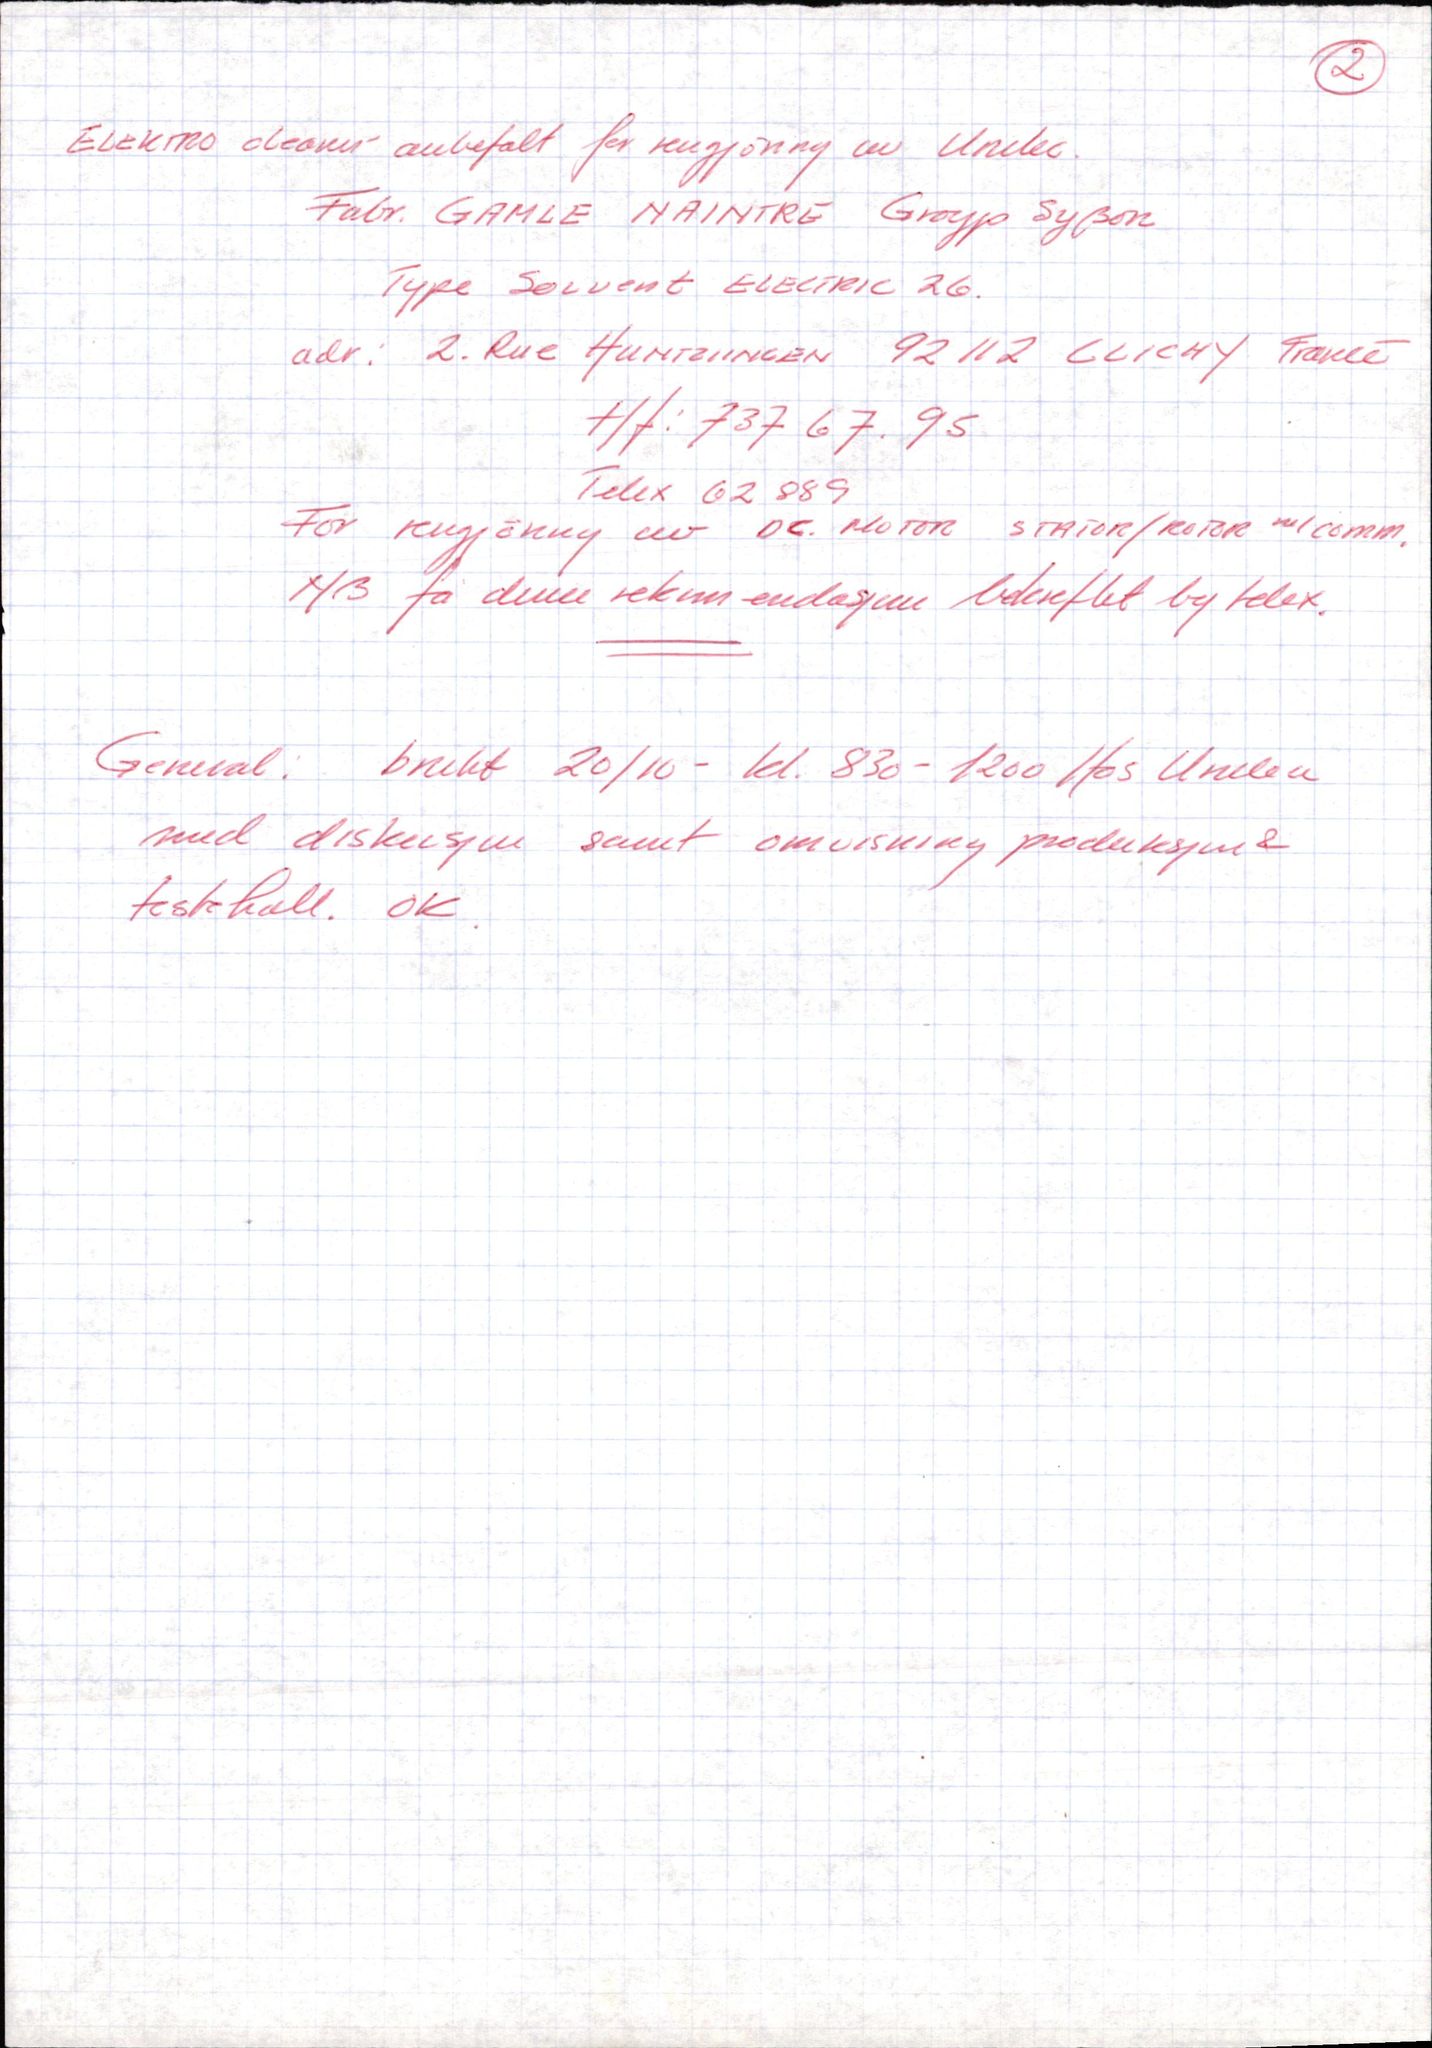 2
ELEKTRO cleaner anbefalt for rengjöring av Unelec.
Fabr. GAMLE NAINTRE Group Sybon
Type Solvent ELECTRIC 26.
adr: 2. Rue HUNTZIINGEN 92112 CLICHY France
tlf: 737 67. 95
Telex 62889
For rengjöring av DC. MOTOR STATOR/ROTOR m/comm.
N/B få denne rekommendasjon bekreftet by telex.
General: brukt 20/10 - kl. 830 - 1200 Hos Unelec
med diskusjon samt omvisning produksjon &
testehall. OK.